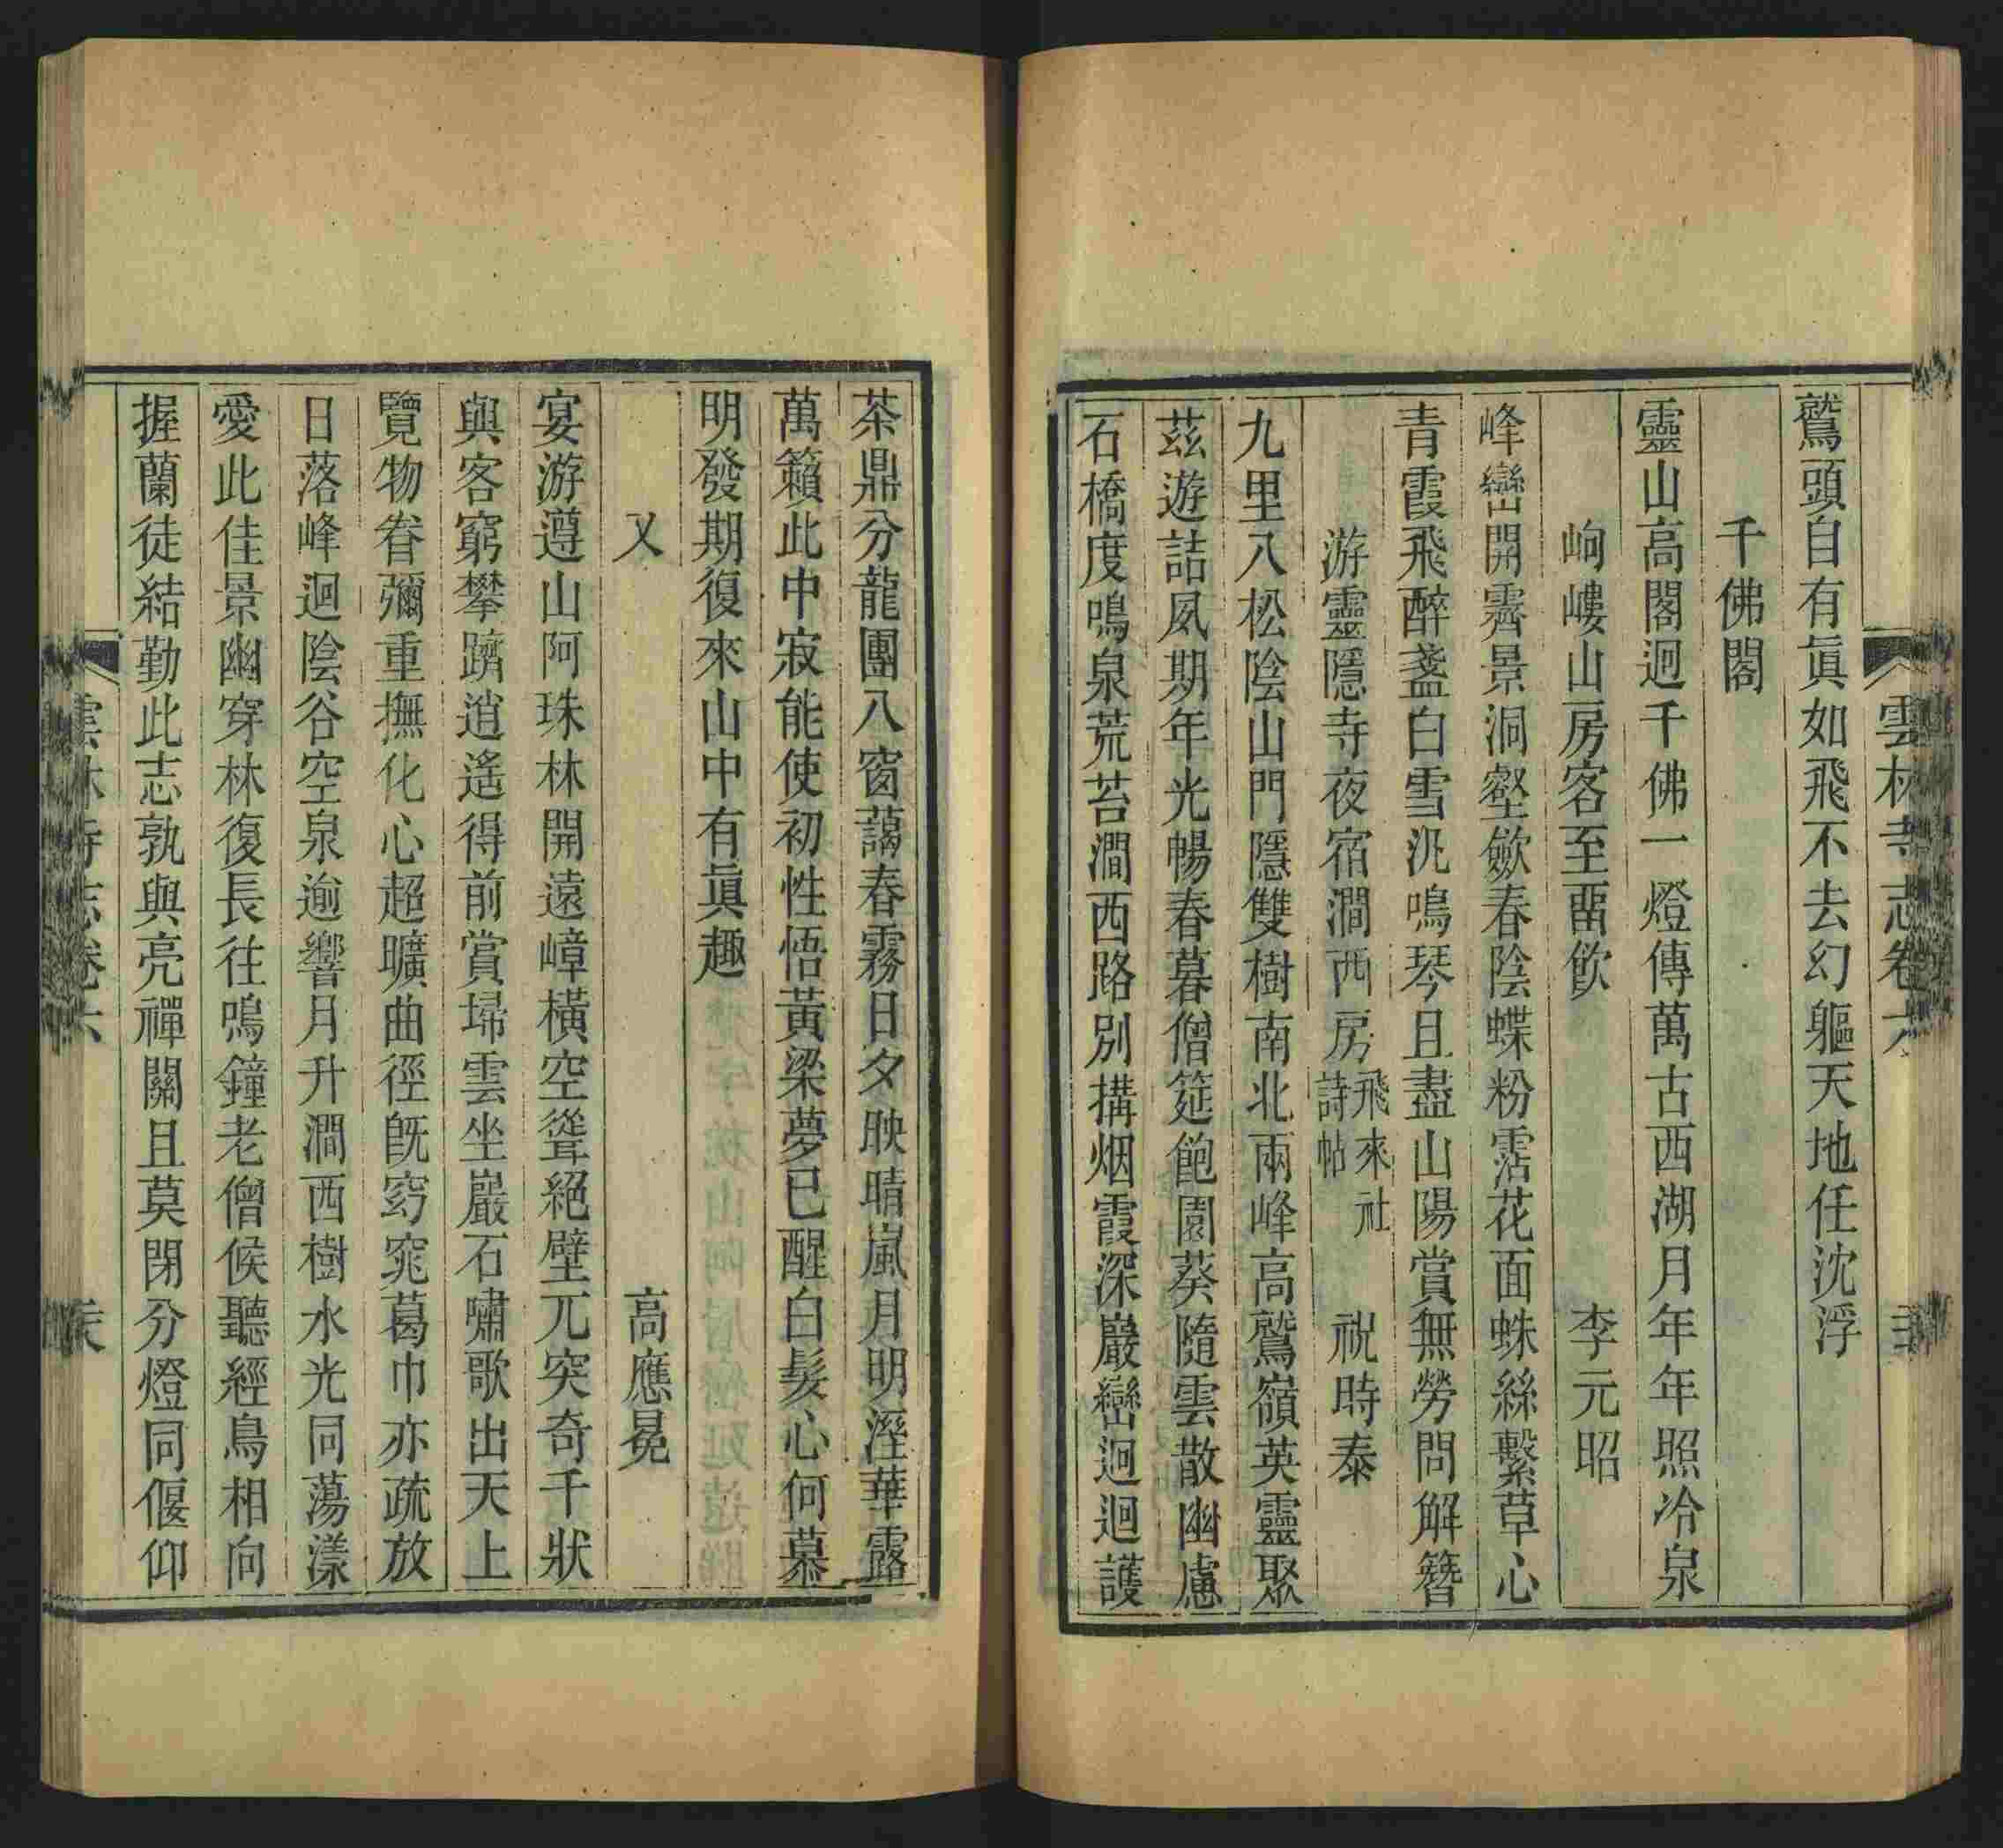 雲林寺志卷六
鷲頭自有眞如飛不去幻軀天地任沈浮
千佛閣
靈山高閣迥千佛一燈傳萬古西湖月年年照冷泉
岣嶁山房客至畱飮 李元昭
峰巒開霽景洞壑歛春陰蝶粉霑花面蛛絲繫草心
青霞飛醉盞白雪汎鳴琴且盡山陽賞無勞問解簪
游靈隱寺夜宿澗西房飛來社詩帖 祝時泰
九里八松陰山門隱雙樹南北兩峰高鷲嶺英靈聚
茲遊詰夙期年光暢春暮僧筵飽園葵隨雲散幽慮
石橋度鳴泉荒苔澗西路別搆烟霞深巖巒迴迴護
茶鼎分龍團八窗藹春霧日夕映晴嵐月明溼華露
萬籟此中寂能使初性悟黃梁夢已醒白髮心何慕
明發期復來山中有眞趣
又 高應冕
宴游遵山阿珠林開遠嶂橫空聳絕壁兀突奇千狀
與客窮攀躋逍遙得前賞埽雲坐巖石嘯歌出天上
覽物眷彌重撫化心超曠曲徑旣窈窕葛巾亦疏放
日落峰迴陰谷空泉逾響月升澗西樹水光同蕩漾
愛此佳景幽穿林復長往鳴鐘老僧候聽經鳥相向
握蘭徒結勤此志孰與亮禪關且莫閉分燈同偃仰
雲林寺志卷六